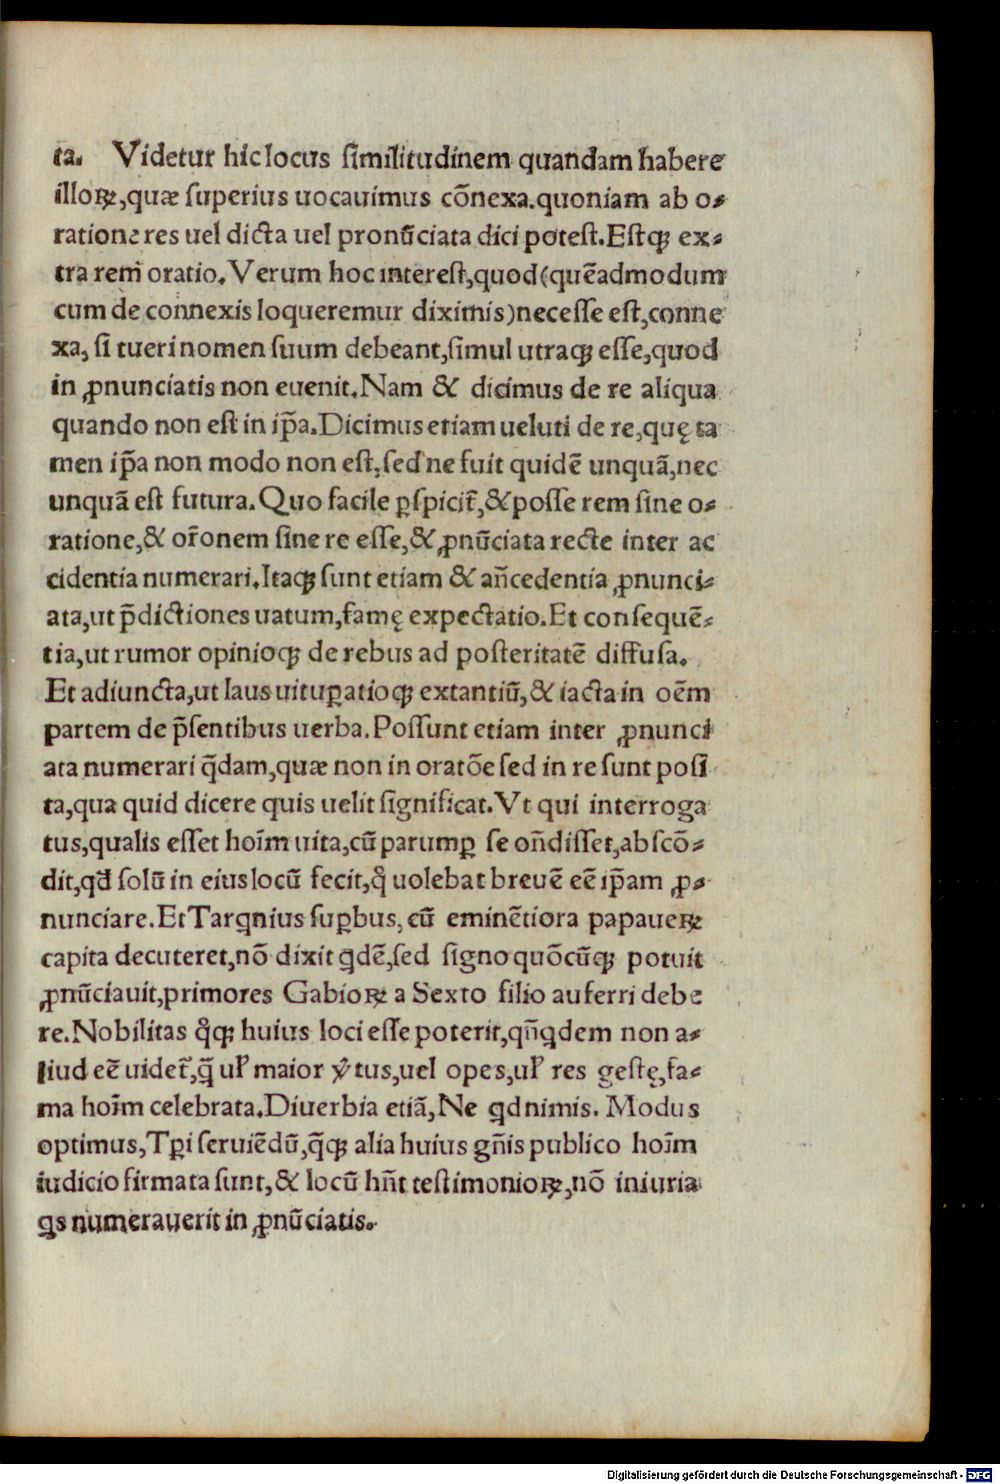 ta. Videtur hic locus similitudinem quandam habere
illoꝝ,quæ superius uocauimus cōnexa.quoniam ab o-
ratione res uel dicta uel pronūciata dici potest.Estqꝫ ex-
tra rem oratio.Verum hoc interest,quod(quēadmodum
cum de connexis loqueremur diximis)necesse est,conne
xa, si tueri nomen suum debeant,simul utraqꝫ esse,quod
in ꝓnunciatis non euenit.Nam & dicimus de re aliqua
quando non est in ip̄a.Dicimus etiam ueluti de re,quę ta
men ip̄a non modo non est,sed ne fuit quidē unquā,nec
unquā est futura.Quo facile ꝑspicit̃,& posse rem sine o-
ratione,& or̃onem sine re esse,& ꝓnūciata recte inter ac
cidentia numerari.Itaqꝫ sunt etiam & an̄cedentia ꝓnunci-
ata,ut p̄dictiones uatum,famę expectatio.Et consequē-
tia,ut rumor opinioqꝫ de rebus ad posteritatē diffusa.
Et adiuncta,ut laus uituꝑatioqꝫ extantiū,& iacta in oēm
partem de p̄sentibus uerba.Possunt etiam inter ꝓnunci
ata numerari q̄dam,quæ non in oratōe sed in re sunt posi
ta,qua quid dicere quis uelit significat.Vt qui interroga
tus,qualis esset hoīm uita,cū parumꝑ se on̄disset,abscō-
dit,qđ solū in eius locū fecit,qͦ uolebat breuē eē ip̄am ꝓ-
nunciare.Et Tarꝗnius suꝑbus, cū eminētiora papaueꝝ
capita decuteret,nō dixit ꝗdē,sed signo quōcūqꝫ potuit
ꝓnūciauit,primores Gabioꝝ a Sexto filio auferri debe
re.Nobilitas qͦqꝫ huius loci esse poterit,qn̄ꝗdem non a-
liud eē uidet̃,q̄ uꝉ maior ỹtus,uel opes,uꝉ res gestę,fa-
ma hoīm celebrata.Diuerbia etiā,Ne ꝗd nimis. Modus
optimus,Tꝑi seruiēdū,q̄qꝫ alia huius gn̄is publico hoīm
iudicio firmata sunt,& locū hn̄t testimonioꝝ,nō iniuria
ꝗs numerauerit in ꝓnūciatis.
Digitalisierung gefördert durch die Deutsche Forschungsgemeinschaft - DFG